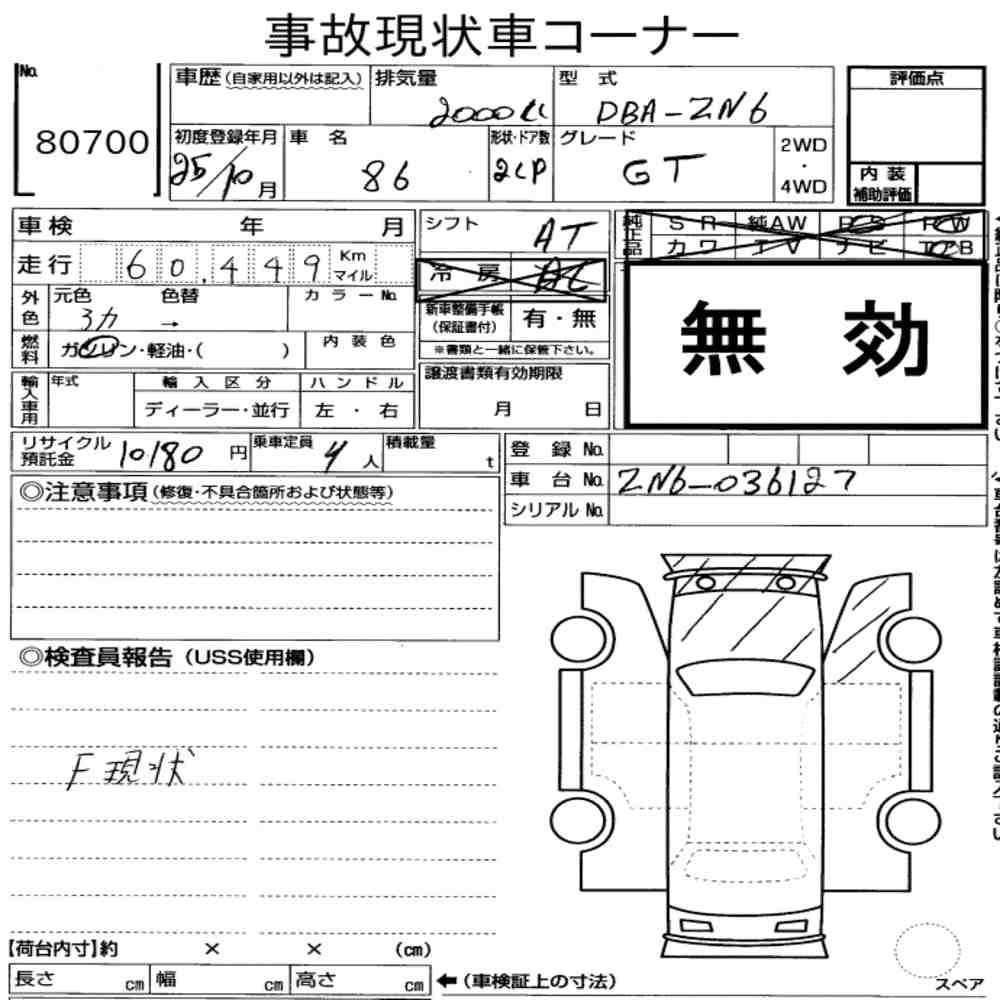 事故現状車コーナー
No. 80700
車歴(自家用以外は記入) 排気量 2000cc 型式 DBA-ZN6 評価点
初度登録年月 25/10月 車名 86 形状・ドア数 2CP グレード GT 2WD・4WD
内装補助評価
車検 年 月 シフト AT
純正品 SR 純AW PS PW
カワ TV ナビ エアB
走行 60,449 Km マイル 冷房 AC
外色 元色 3カ 色替 → カラーNo.
新車整備手帳(保証書付) 有・無
※書類と一緒に保管下さい。
無効
燃料 ガソリン・軽油・( ) 内装色
輸入車用 年式 輸入区分 ハンドル
ディーラー・並行 左・右
譲渡書類有効期限
月 日
リサイクル預託金 10180円 乗車定員 4人 積載量 t
登録No.
車台No. ZN6-036127
シリアルNo.
◎注意事項(修復・不具合箇所および状態等)
◎検査員報告(USS使用欄)
F現状
【荷台内寸】約 × × (cm)
長さ cm 幅 cm 高さ cm ←(車検証上の寸法)
スペア